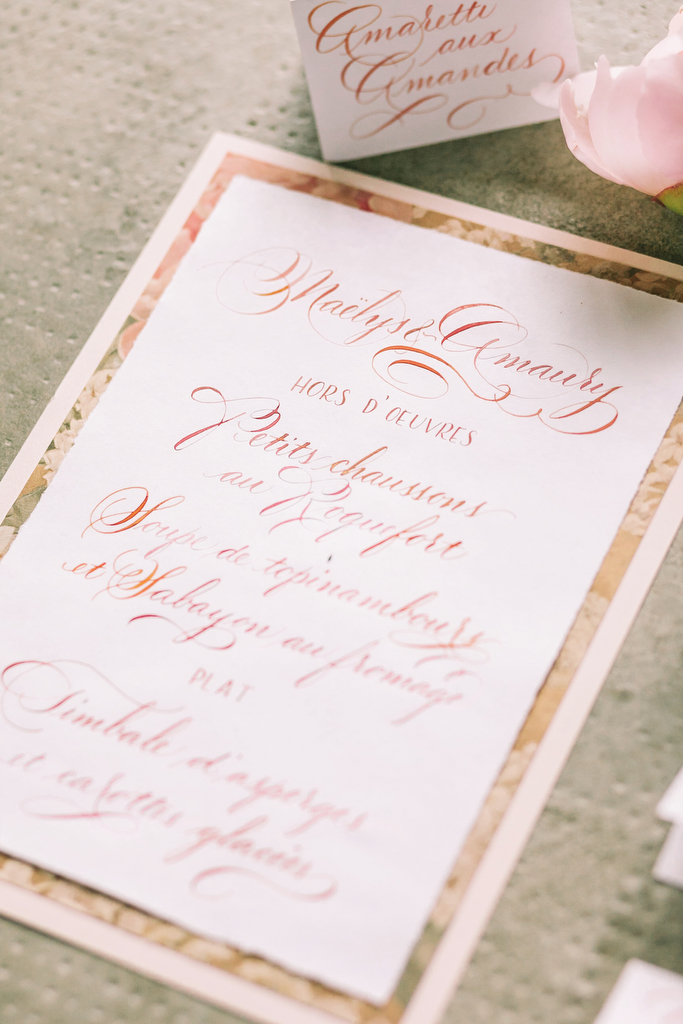 Amaretti
aux
Amandes
Maëlys & Amaury
HORS D'ŒUVRES
Petits chaussons
au Roquefort
Soupe de topinambours
et Sabayon au fromage
PLAT
Timbale d'asperges
et carottes glacées